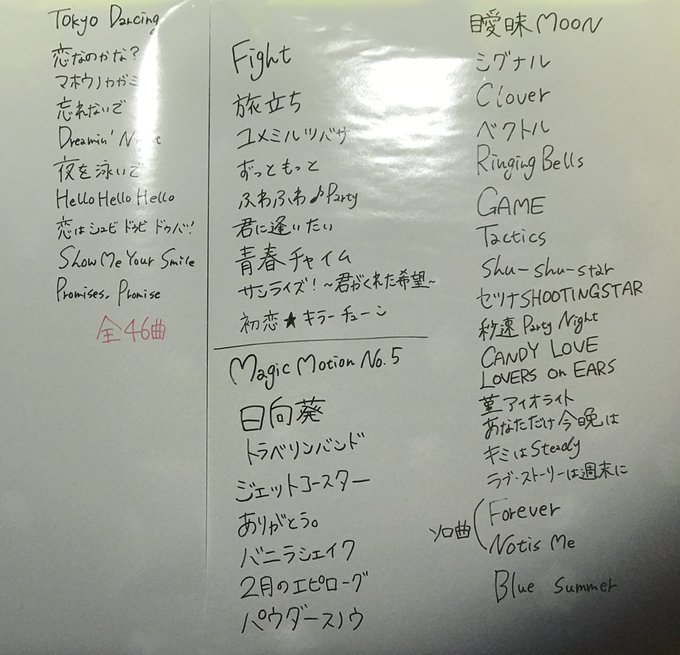 Tokyo Dancing
恋なのかな?
マホウノカガミ
忘れないで
Dreamin' Night
夜を泳いで
Hello Hello Hello
恋はシュビドゥビドゥバ!
Show Me Your Smile
Promises, Promise
全46曲
Fight
旅立ち
ユメミルツバサ
ずっともっと
ふわふわ♪Party
君に逢いたい
青春チャイム
サンライズ!~君がくれた希望~
初恋★キラーチューン
Magic Motion No.5
日向葵
トラベリンバンド
ジェットコースター
ありがとう。
バニラシェイク
2月のエピローグ
パウダースノウ
曖昧MOON
シグナル
Clover
ベクトル
Ringing Bells
GAME
Tactics
Shu-shu-star
セツナSHOOTINGSTAR
秒速Party Night
CANDY LOVE
LOVERS on EARS
菫アイオライト
あなただけ今晩は
キミはSteady
ラブ・ストーリーは週末に
ソロ曲
Forever
Notis Me
Blue Summer